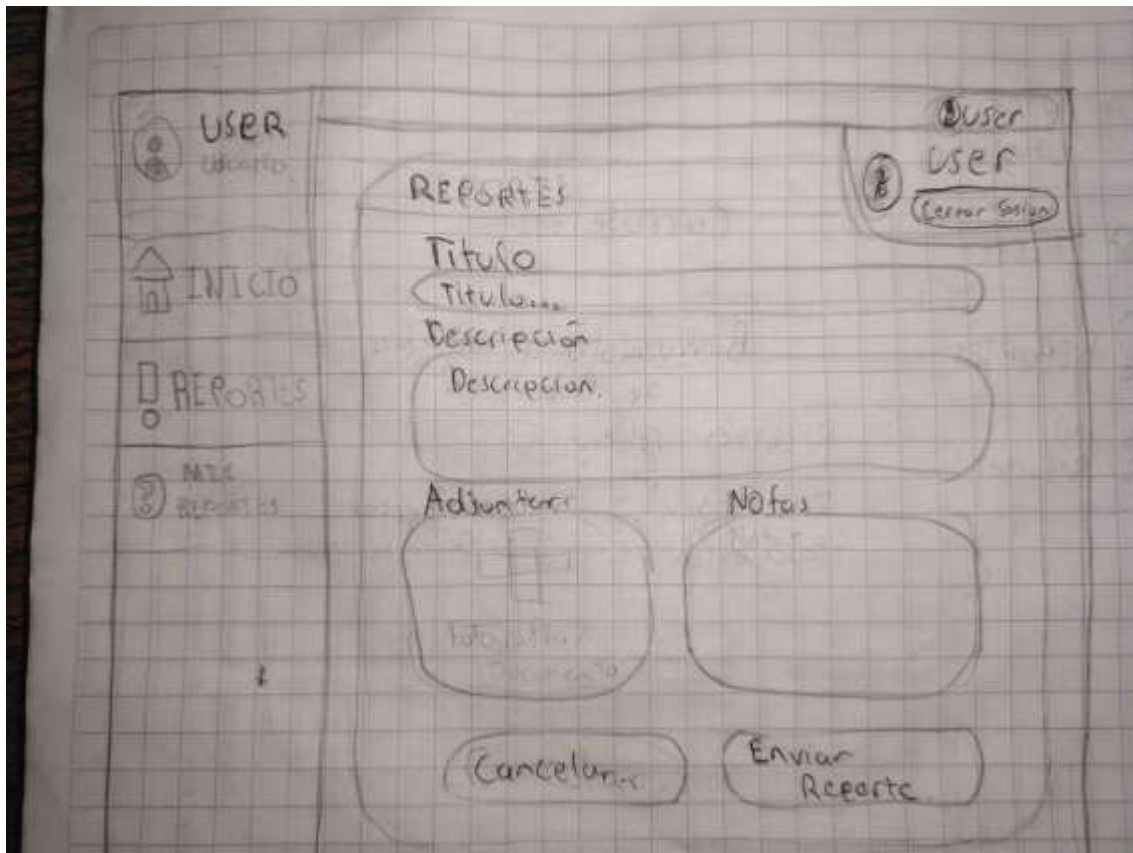 USER
usuario
INICIO
REPORTES
MIS
REPORTES
user
user
Cerrar Sesion
REPORTES
Titulo
Titulo...
Descripción
Descripcion.
Adjuntar
Notas
Cancelar...
Enviar
Reporte